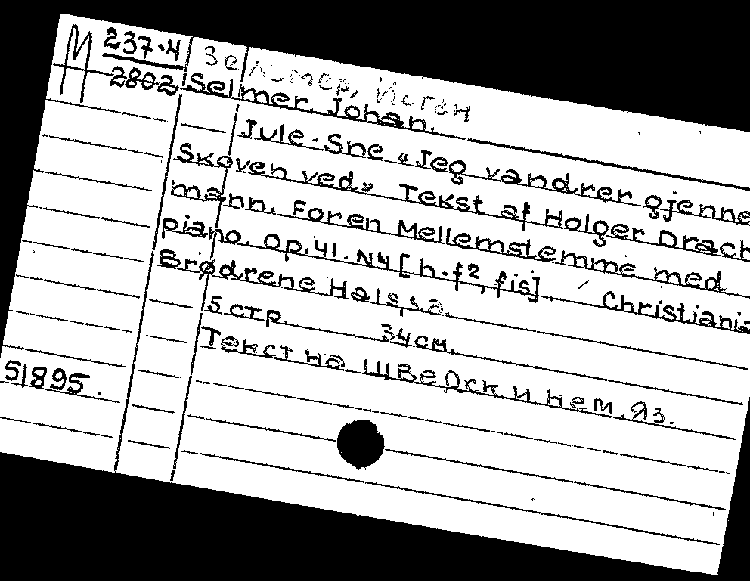 М 237-4 Зельмер, Иоган
2802 Selmer, Johan.
Jule-Sne "Jeg vandrer gjenne
Skoven ved" Tekst af Holger Drach
mann. Foren Mellemstemme med
piano. Op.41. N4 [h.-f², fis]. Christiania
Brødrene Hals, s.a.
5 стр. 34 см.
Текст на шведск и нем. яз.
51895.